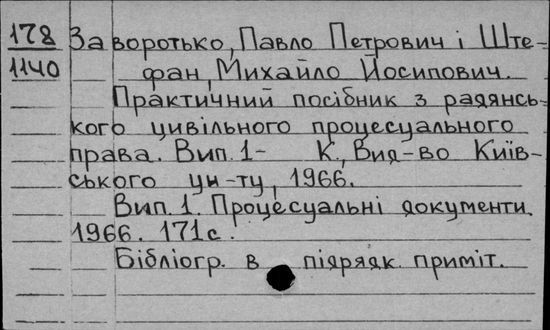 178 Заворотько, Павло Петрович і Ште-
1140 фан, Михайло Йосипович.
Практичний посібник з радянсь-
кого цивільного процесуального
права. Вип. 1- К., Вид-во Київ-
ського ун-ту, 1966.
Вип. 1. Процесуальні документи.
1966. 171с.
Бібліогр. в підрядк. приміт.